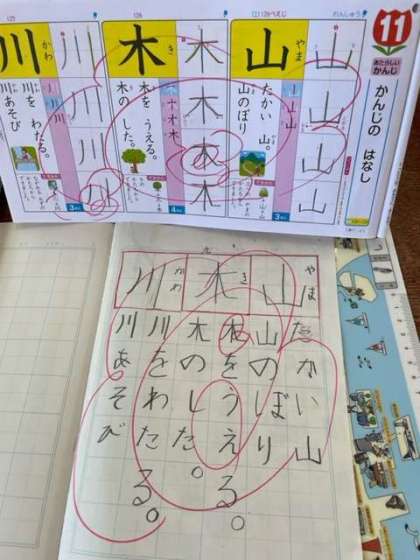 11
あたらしい
かんじ
かんじの はなし
やま
山
山
山
山
山
たかい 山。
山のぼり
き
木
木
木
木
木
木を うえる。
木の した。
かわ
川
川
川
川
川
川を わたる。
川あそび
やま
山
き
木
かわ
川
たかい山
山のぼり
木をうえる。
木のした。
川をわたる。
川あそび